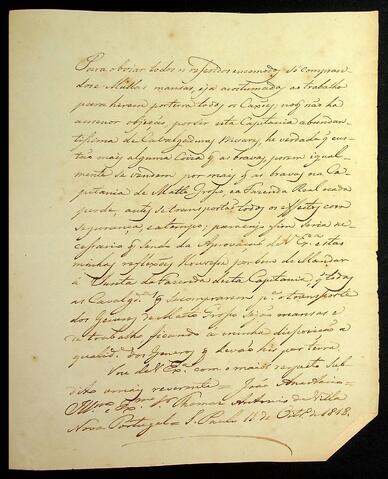 Para obviar todos os referidos encomodos, só compran-
dose Mullas mansas, e ja acostumadas ao trabalho
para hirem por terra todos os Caxões, no q. não ha
a menor objeção, por ser esta Capitania abundan-
tissima de Cavalgaduras Muares, he verdade q. cus-
tão mais alguma Couza q. as bravas, porem igual-
mente se vendem por mais q. as bravas na Ca-
pitania de Matto Grosso e a Fazenda Real nada
perde, antes se transportão todos os effeitos com
segurança e a tempo; para cujo fim seria ne-
cessario q. sendo da Aprovação de V. Ex.ª estas
minhas reflexões houvesse por bem de Mandar
à Junta da Fazenda desta Capitania, q. todas
as Cavalg.as q. se comprarem p.ª o transporte
dos Generos de Matto Grosso sejão mansas e
de trabalho, ficando a minha disposição a
qualid.e dos Generos q. devão hir por terra.
Ds. de V. Ex.ª com o maior respeito Sub-
dito o mais reverente = João Anastacio =
Ill.mo e Ex.mo Sr. Thomaz Antonio de Villa
Nova Portugal = S. Paulo 11 de Out.º de 1818.